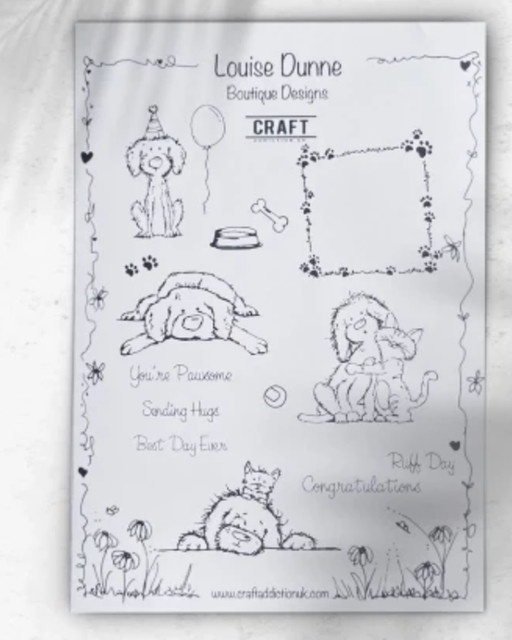 Louise Dunne
Boutique Designs
CRAFT
You're Pawsome
Sending Hugs
Best Day Ever
Ruff Day
Congratulations
www.craftaddictionuk.com